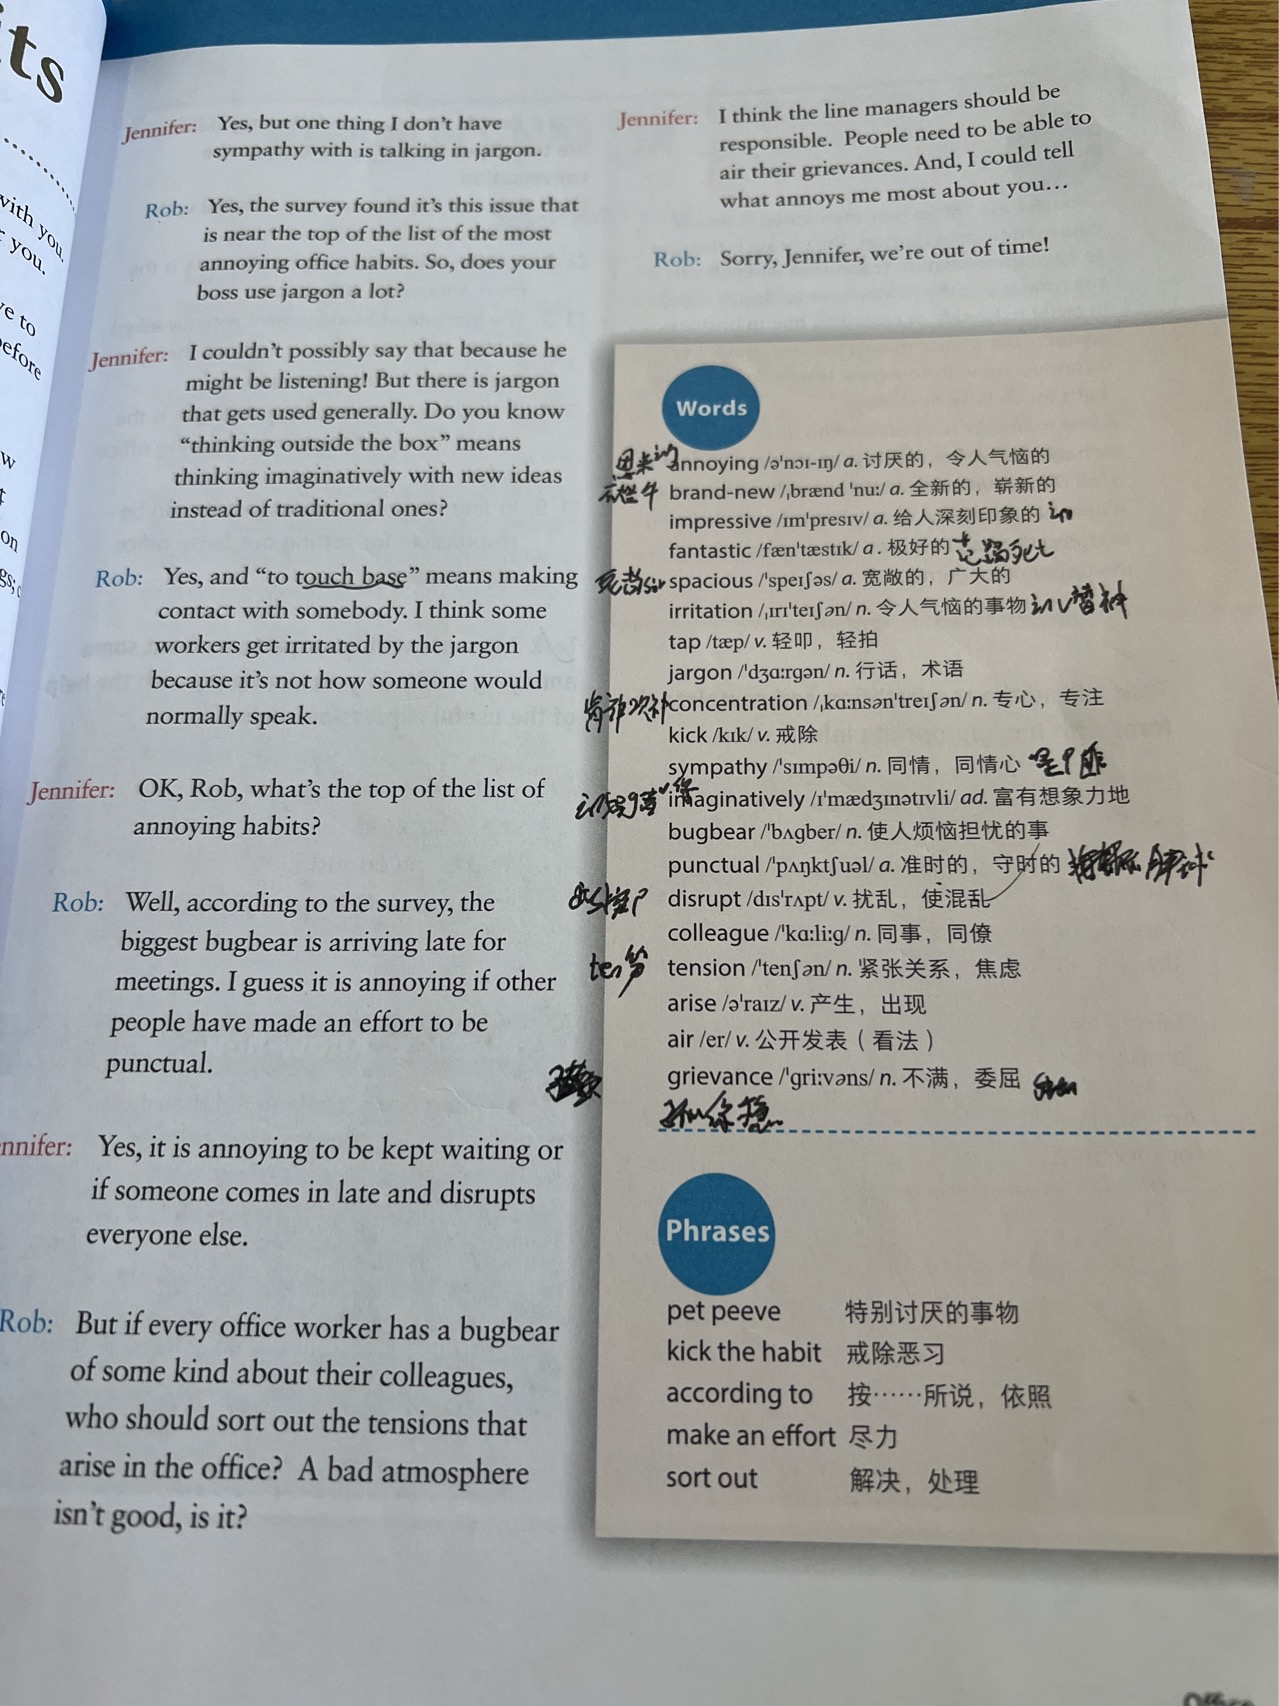 its
with you.
you.
ve to
before
w
on
Jennifer: Yes, but one thing I don't have
sympathy with is talking in jargon.
Rob: Yes, the survey found it's this issue that
is near the top of the list of the most
annoying office habits. So, does your
boss use jargon a lot?
Jennifer: I couldn't possibly say that because he
might be listening! But there is jargon
that gets used generally. Do you know
“thinking outside the box” means
thinking imaginatively with new ideas
instead of traditional ones?
Rob: Yes, and “to touch base” means making
contact with somebody. I think some
workers get irritated by the jargon
because it's not how someone would
normally speak.
Jennifer: OK, Rob, what's the top of the list of
annoying habits?
Rob: Well, according to the survey, the
biggest bugbear is arriving late for
meetings. I guess it is annoying if other
people have made an effort to be
punctual.
nnifer: Yes, it is annoying to be kept waiting or
if someone comes in late and disrupts
everyone else.
Rob: But if every office worker has a bugbear
of some kind about their colleagues,
who should sort out the tensions that
arise in the office? A bad atmosphere
isn't good, is it?
Jennifer: I think the line managers should be
responsible. People need to be able to
air their grievances. And, I could tell
what annoys me most about you…
Rob: Sorry, Jennifer, we're out of time!
Words
annoying /ə'nɔɪ-ɪŋ/ a. 讨厌的，令人气恼的
brand-new /ˌbrænd 'nuː/ a. 全新的，崭新的
impressive /ɪm'presɪv/ a. 给人深刻印象的
fantastic /fæn'tæstɪk/ a. 极好的
spacious /'speɪʃəs/ a. 宽敞的，广大的
irritation /ˌɪrɪ'teɪʃən/ n. 令人气恼的事物
tap /tæp/ v. 轻叩，轻拍
jargon /'dʒɑːrgən/ n. 行话，术语
concentration /ˌkɑːnsən'treɪʃən/ n. 专心，专注
kick /kɪk/ v. 戒除
sympathy /'sɪmpəθi/ n. 同情，同情心
imaginatively /ɪ'mædʒɪnətɪvli/ ad. 富有想象力地
bugbear /'bʌgber/ n. 使人烦恼担忧的事
punctual /'pʌŋktʃuəl/ a. 准时的，守时的
disrupt /dɪs'rʌpt/ v. 扰乱，使混乱
colleague /'kɑːliːg/ n. 同事，同僚
ten笋 tension /'tenʃən/ n. 紧张关系，焦虑
arise /ə'raɪz/ v. 产生，出现
air /er/ v. 公开发表（看法）
grievance /'griːvəns/ n. 不满，委屈
Phrases
pet peeve 特别讨厌的事物
kick the habit 戒除恶习
according to 按……所说，依照
make an effort 尽力
sort out 解决，处理